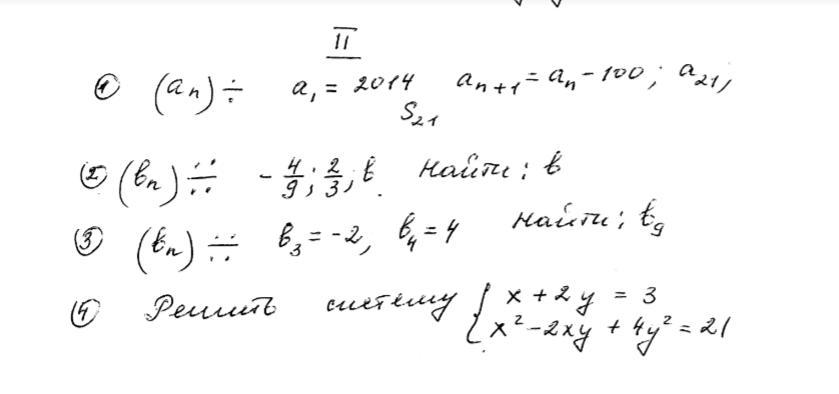 II
① (aₙ) ÷ a₁ = 2014 aₙ₊₁ = aₙ - 100 ; a₂₁,
S₂₁
② (bₙ) ÷ -4/9 ; 2/3 ; b. Найти: b
③ (bₙ) ÷ b₃ = -2, b₄ = 4 Найти: b₉
④ Решить систему { x + 2y = 3
x² - 2xy + 4y² = 21